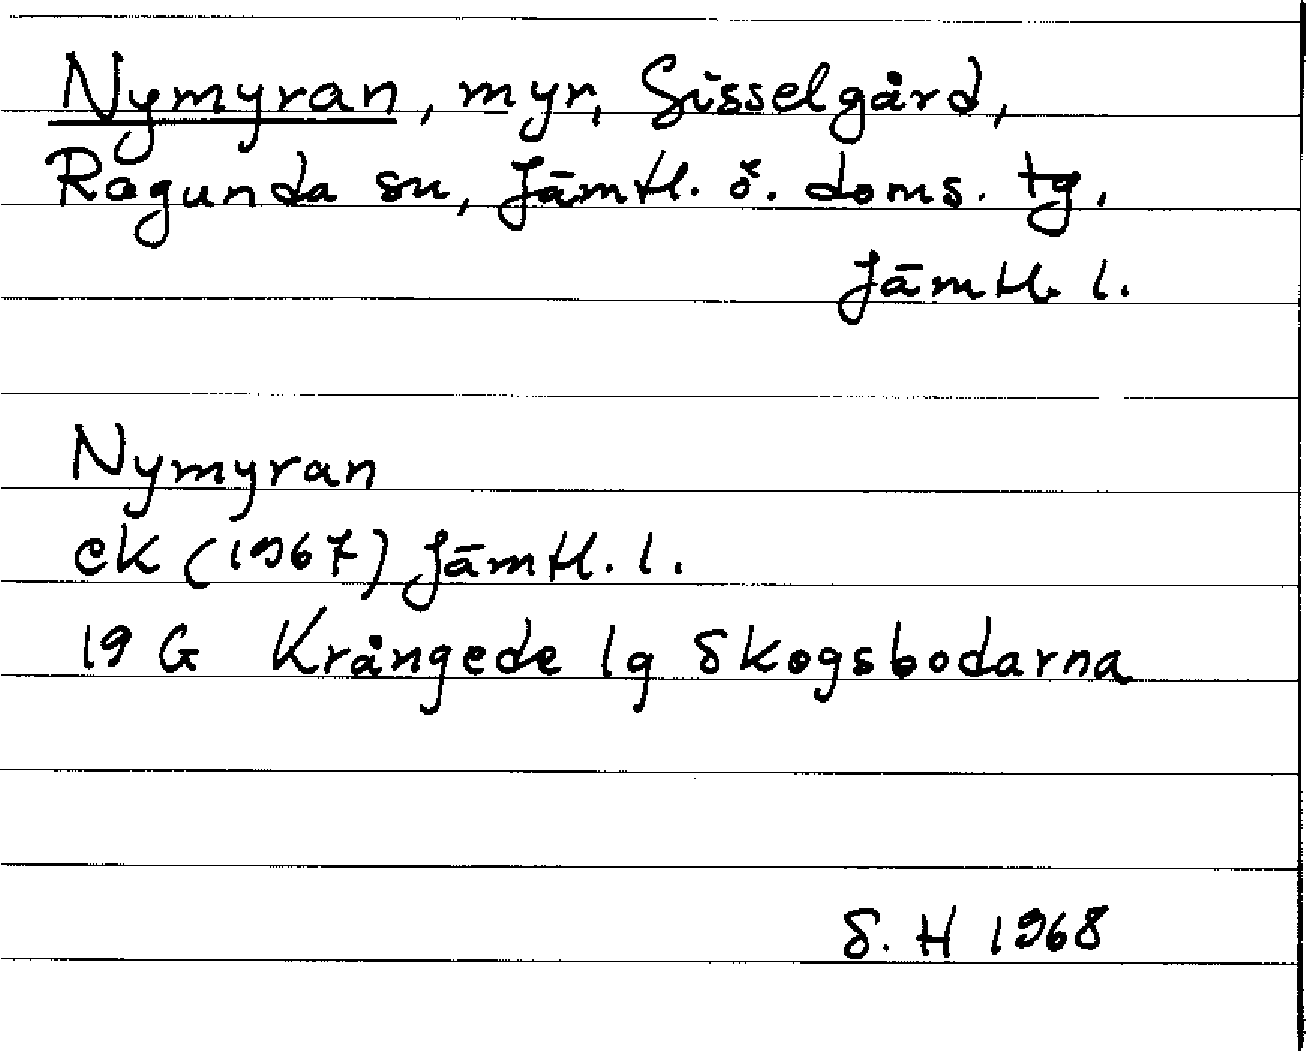 Nymyran, myr, Sisselgård,
Ragunda sn, Jämtl. ö. doms. tg.
Jämtl. l.
Nymyran
ek (1967) Jämtl. l.
19 G Krångede 1g Skogsbodarna
S. H 1968